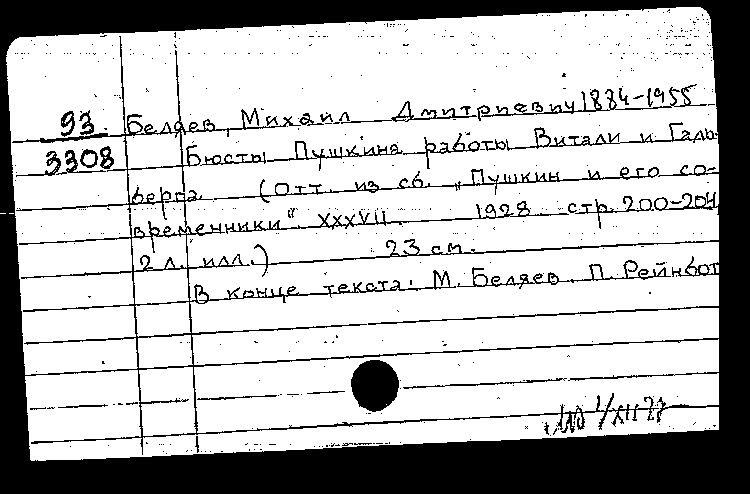 93 Беляев, Михаил Дмитриевич 1884-1955
3308 Бюсты Пушкина работы Витали и Галь-
берга. (Отт. из сб. „Пушкин и его со-
временники" XXXVII. 1928 стр. 200-204,
2 л. илл.) 23 см.
В конце текста: М. Беляев. П. Рейнбот